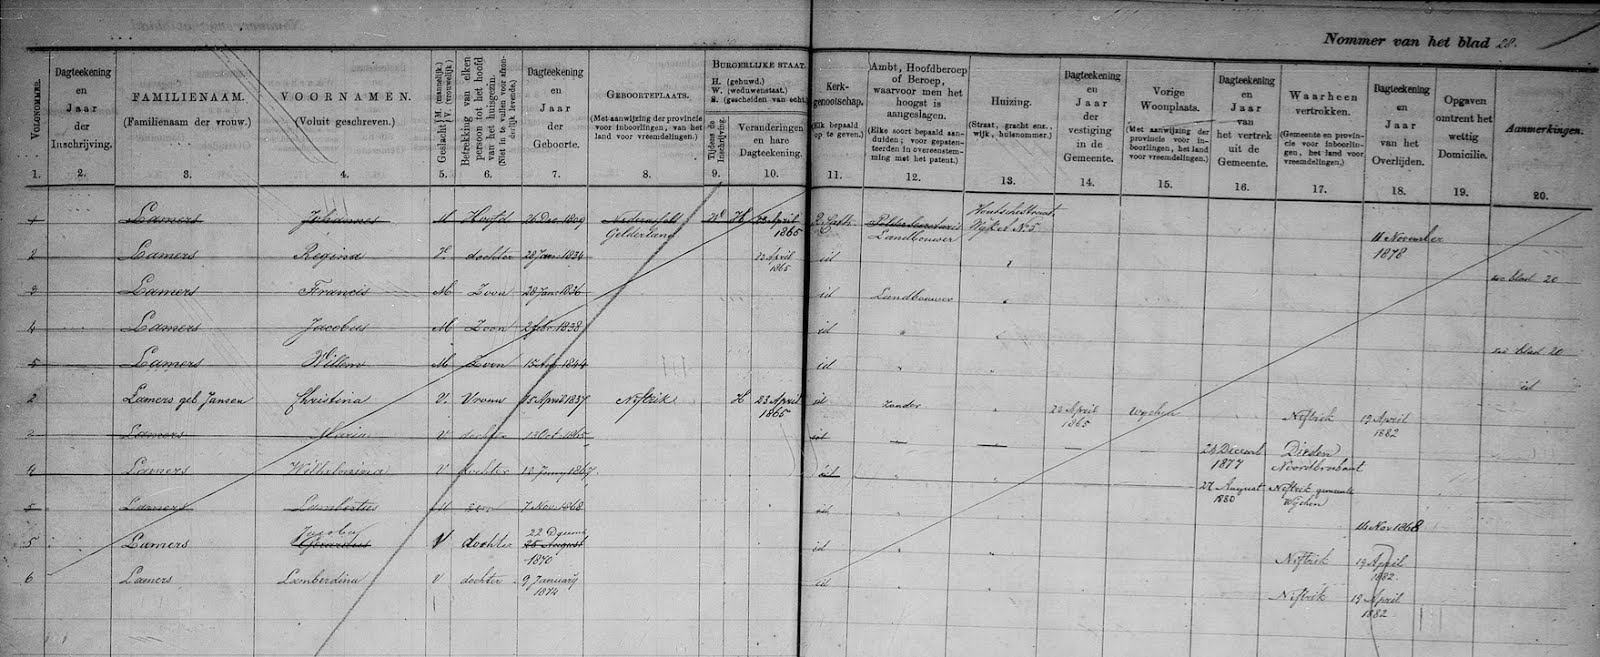 Nommer van het blad 28.
VOLGNOMMER.
1.
Dagteekening
en
Jaar
der
Inschrijving.
2.
FAMILIENAAM.
(Familienaam der vrouw.)
3.
VOORNAMEN.
(Voluit geschreven.)
4.
Geslacht M. (mannelijk.) V. (vrouwelijk.)
5.
Betrekking van elken
persoon tot het hoofd
van het huisgezin.
(Niet in te vullen voor afzon-
derlijk levende.)
6.
Dagteekening
en
Jaar
der
Geboorte.
7.
GEBOORTEPLAATS.
(Met aanwijzing der provincie
voor inboorlingen, van het
land voor vreemdelingen.)
8.
BURGERLIJKE STAAT.
H. (gehuwd.)
W. (weduwenstaat.)
S. (gescheiden van echt.)
Tijdens de
Inschrijving.
9.
Veranderingen
en hare
Dagteekening.
10.
Kerk-
genootschap.
(Elk bepaald
op te geven.)
11.
Ambt, Hoofdberoep
of Beroep,
waarvoor men het
hoogst is
aangeslagen.
(Elke soort bepaald aan-
duiden; voor gepaten-
teerden in overeenstem-
ming met het patent.)
12.
Huizing.
(Straat, gracht enz.,
wijk, huisnommer.)
13.
Dagteekening
en
Jaar
der
vestiging
in de
Gemeente.
14.
Vorige
Woonplaats.
(Met aanwijzing der
provincie voor in-
boorlingen, het land
voor vreemdelingen.)
15.
Dagteekening
en
Jaar
van
het vertrek
uit de
Gemeente.
16.
Waarheen
vertrokken.
(Gemeente en provin-
cie voor inboorlin-
gen, het land voor
vreemdelingen.)
17.
Dagteekening
en
Jaar
van het
Overlijden.
18.
Opgaven
omtrent het
wettig
Domicilie.
19.
Aanmerkingen.
20.
1 Lamers Johannes M Hoofd 26 Dec. 1809 Nederasselt W H 23 April R. Cath. Houtschestraat
Gelderland 1865 Landbouwer Wijk N. 5 11 November
1878
2 Lamers Regina V. dochter 28 Jan. 1834 23 April 1865 id
3 Lamers Francis M Zoon 28 Jan. 1836 id Landbouwer blad 20
4 Lamers Jacobus M Zoon 2 feb. 1838 id
5 Lamers Willem M Zoon 15 Aug 1844 id blad 20
id
2 Lamers geb. Jansen Christina V. Vrouw 15 April 1837 Niftrik H 23 April 1865 id Zonder 23 April 1865 Wychen Niftrik 19 April 1882
3 Lamers Maria V dochter 13 Oct. 1865 id 28 Decemb 1877 Dieden Noordbrabant
4 Lamers Wilhelmina V dochter 13 Juny 1867 id 27 August 1880 Niftrik gemeente Wychen
5 Lamers Lambertus M zoon 7 Nov. 1868 id 14 Nov 1868
5 Lamers Jacoba Gerardus V dochter 22 25 August 1870 id Niftrik 19 April 1882.
6 Lamers Lamberdina V dochter 9 January 1874 id Niftrik 19 April 1882